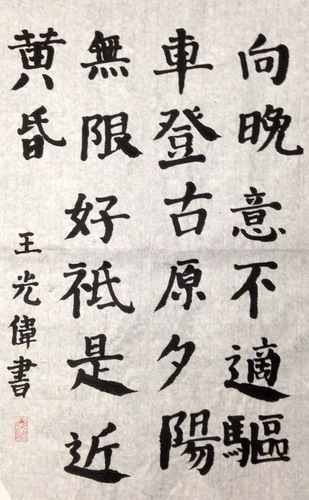 向晚意不適驅
車登古原夕陽
無限好祗是近
黄昏
王光偉書